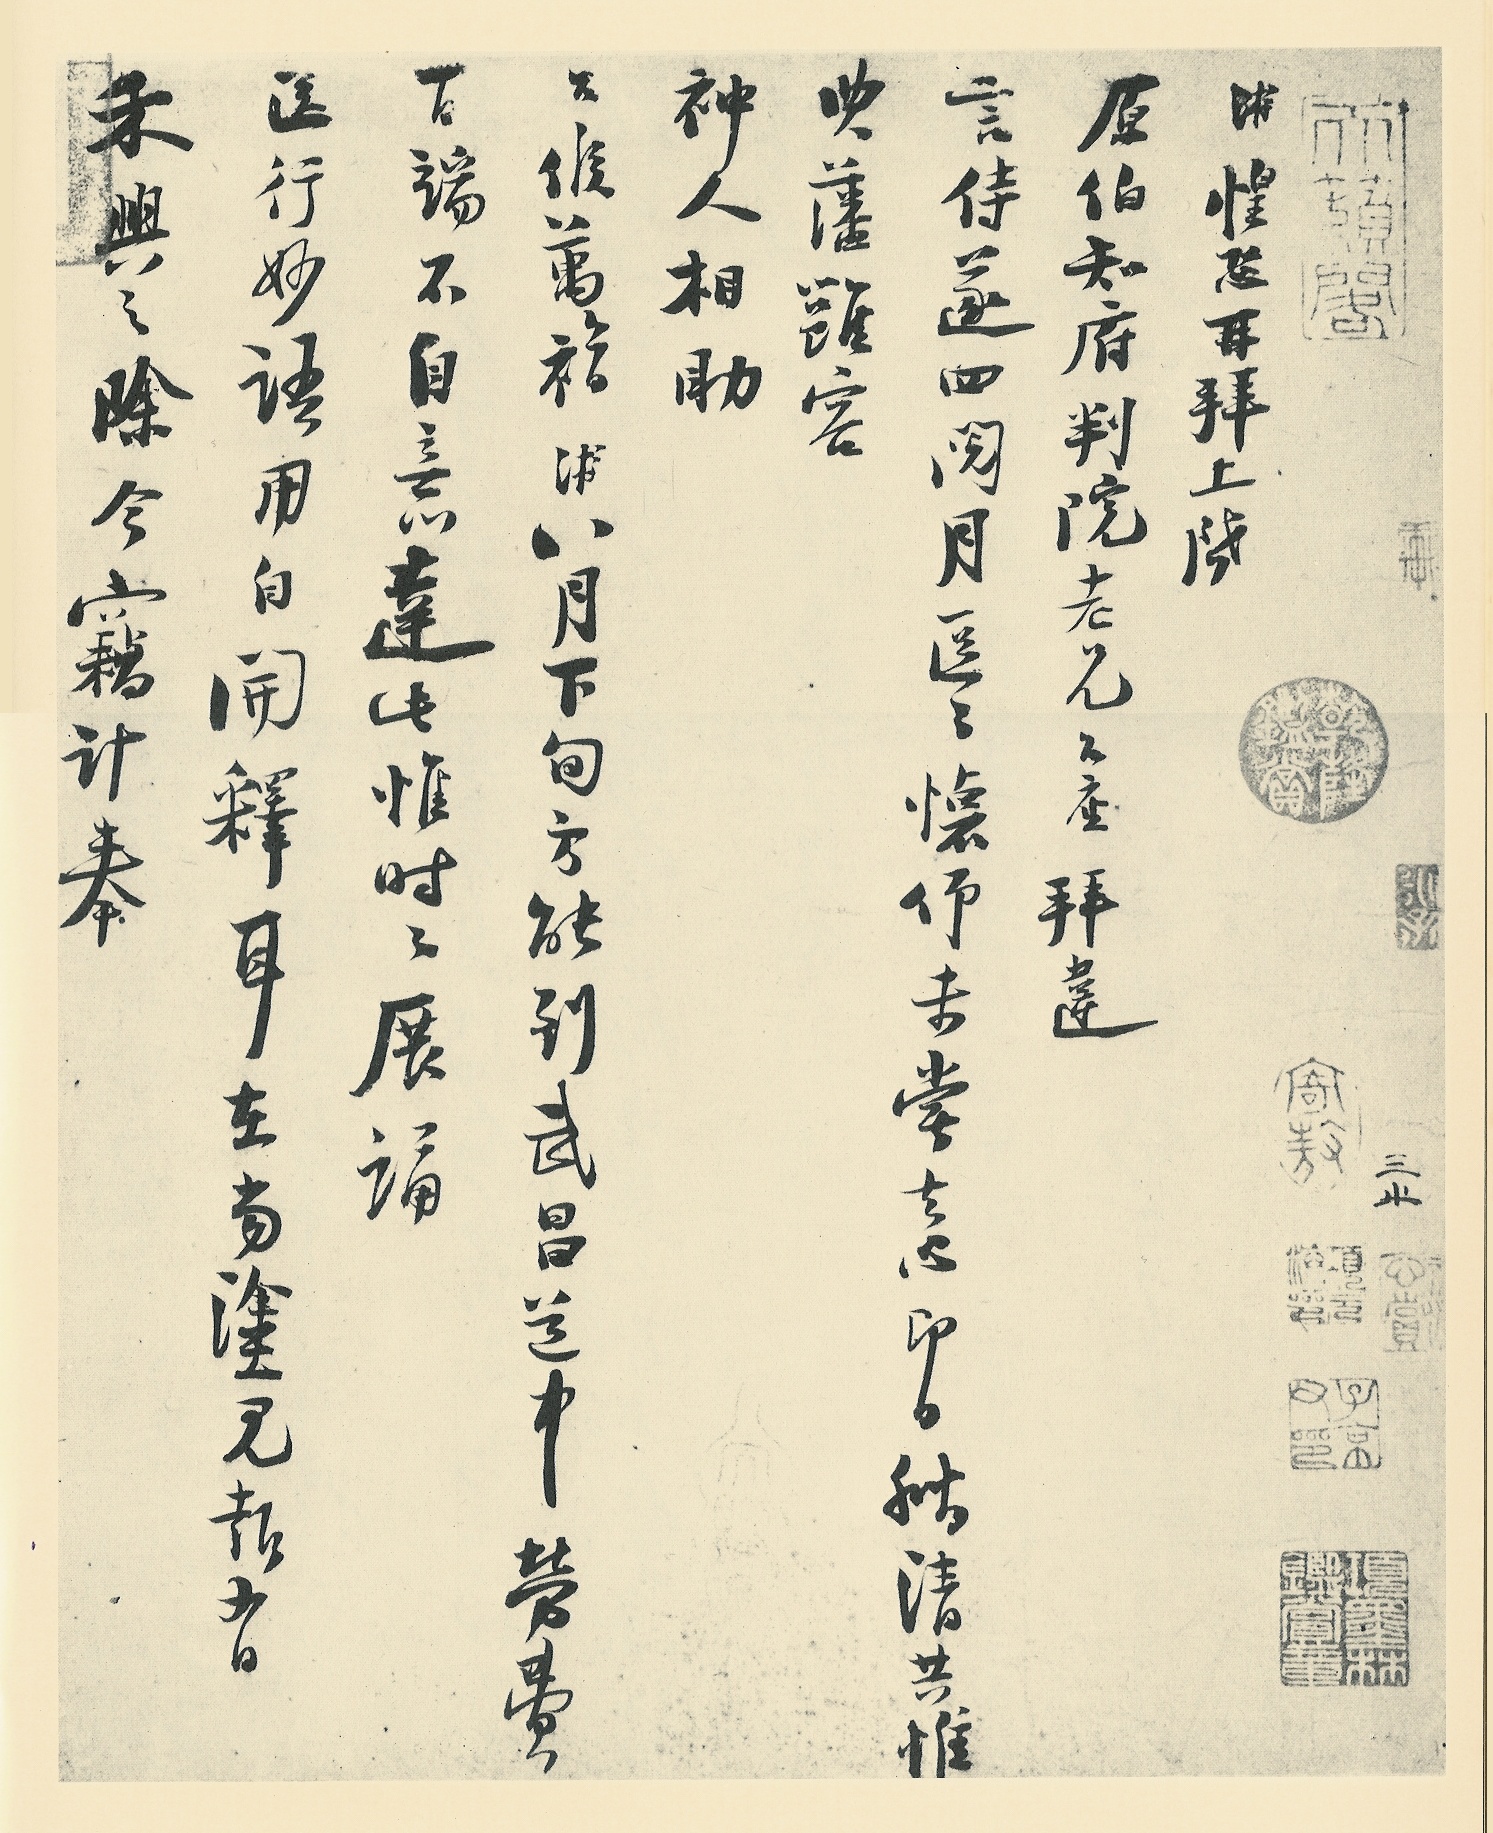 惶恐再拜上啓
原伯知府判院老兄公座拜違
言侍遂四閱月區區懷仰未嘗去心即日秋清共惟
典藩雖容
神人相助
公候萬福 八月下旬方能到武昌道中勞費
百端不自意達此惟時時展誦
送行妙語用自開釋耳在當塗見報有
禾興之除今竊計奉